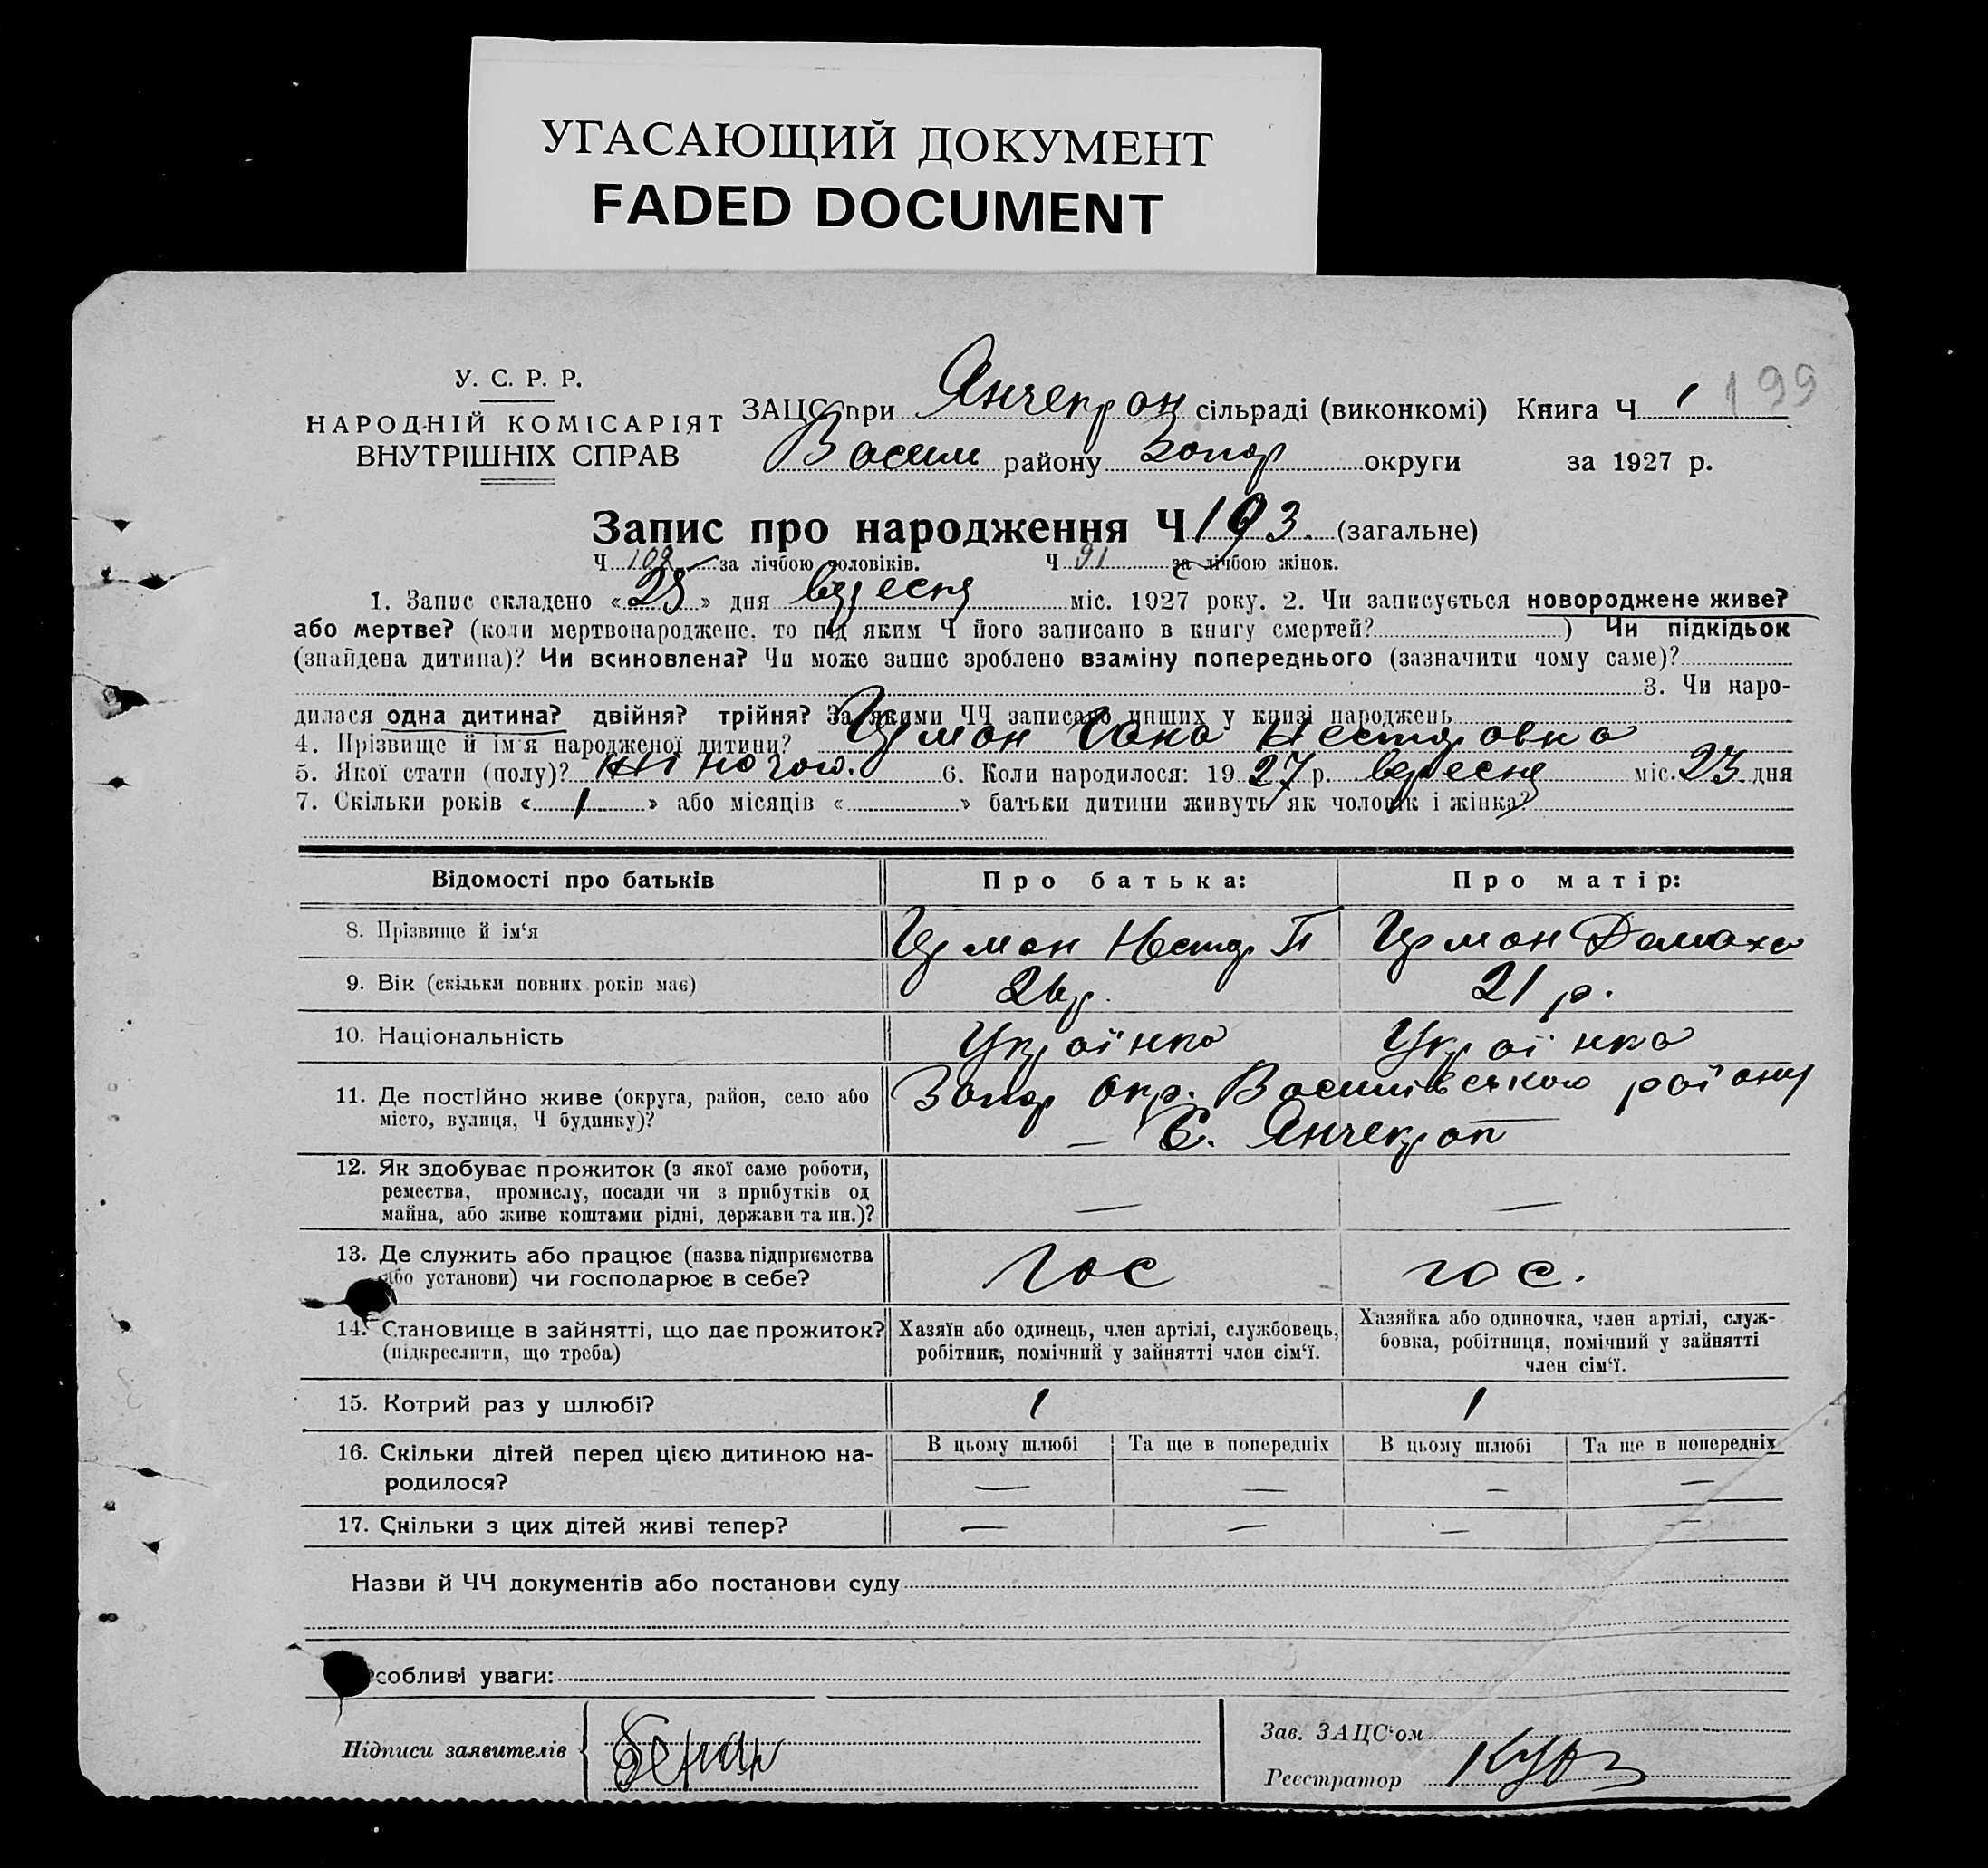 УГАСАЮЩИЙ ДОКУМЕНТ
FADED DOCUMENT
199
У. С. Р. Р.
НАРОДНІЙ КОМІСАРІЯТ
ВНУТРІШНІХ СПРАВ
ЗАЦС при Янчекрак сільраді (виконкомі) Книга Ч 1
Васил району Запор округи за 1927 р.
Запис про народження Ч 193. (загальне)
Ч 102 за лічбою чоловіків. Ч 91 за лічбою жінок.
1. Запис складено «25» дня вересня міс. 1927 року. 2. Чи записується новороджене живе?
або мертве? (коли мертвонароджене, то під яким Ч його записано в книгу смертей? ) Чи підкідьок
(знайдена дитина)? Чи всиновлена? Чи може запис зроблено взаміну попереднього (зазначити чому саме)?
3. Чи наро-
дилася одна дитина? двійня? трійня? За якими ЧЧ записано инших у книзі народжень
4. Прізвище й ім'я народженої дитини? Несторовна
5. Якої стати (полу)? жіночої. 6. Коли народилося: 1927 р. вересня міс. 23 дня
7. Скільки років «1» або місяців « » батьки дитини живуть як чоловік і жінка?
Відомості про батьків Про батька: Про матір:
8. Прізвище й ім'я Нестор П
9. Вік (скільки повних років має) 26 р. 21 р.
10. Національність Українка Українка
11. Де постійно живе (округа, район, село або Запор окр. Василівського району
місто, вулиця, Ч будинку)? — С. Янчекрак
12. Як здобуває прожиток (з якої саме роботи,
ремества, промислу, посади чи з прибутків од
майна, або живе коштами рідні, держави та ин.)? — —
13. Де служить або працює (назва підприємства
або установи) чи господарює в себе? гос гос.
14. Становище в зайнятті, що дає прожиток? Хазяїн або одинець, член артілі, службовець, Хазяйка або одиночка, член артілі, служ-
(підкреслити, що треба) робітник, помічний у зайнятті член сім'ї. бовка, робітниця, помічний у зайнятті
член сім'ї.
15. Котрий раз у шлюбі? 1 1
16. Скільки дітей перед цією дитиною на- В цьому шлюбі Та ще в попередніх В цьому шлюбі Та ще в попередніх
родилося? — — — —
17. Скільки з цих дітей живі тепер? — — — —
Назви й ЧЧ документів або постанови суду
собливі уваги:
Підписи заявителів
Зав. ЗАЦС'ом
Реєстратор